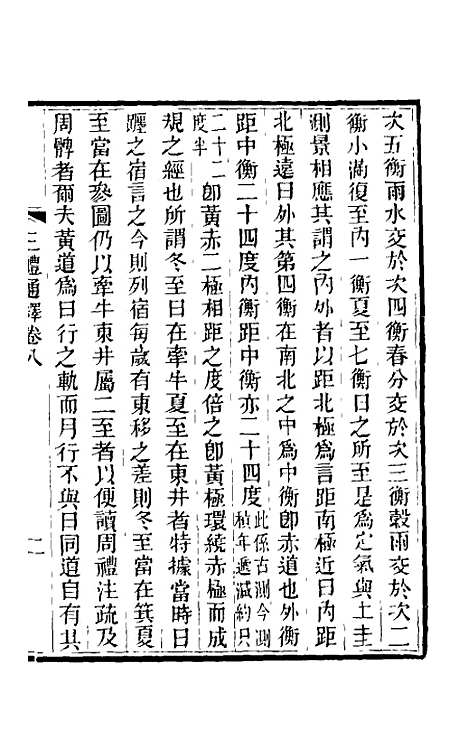 次五衡雨水交於次四衡春分交於次三衡穀雨交於次二
衡小滿復至內一衡夏至七衡日之所至是爲定氣與土圭
測景相應其謂之內外者以距北極爲言距南極近曰內距
北極遠曰外其第四衡在南北之中爲中衡卽赤道也外衡
距中衡二十四度內衡距中衡亦二十四度此係古測今測積年遞減約只
二十二度半卽黃赤二極相距之度倍之卽黃極環繞赤極而成
規之經也所謂冬至日在牽牛夏至在東井者特據當時日
躔之宿言之今則列宿每歲有東移之差則冬至當在箕夏
至當在參圖仍以牽牛東井屬二至者以便讀周禮注疏及
周髀者爾夫黃道爲日行之軌而月行不與日同道自有其
三禮通釋卷八
二